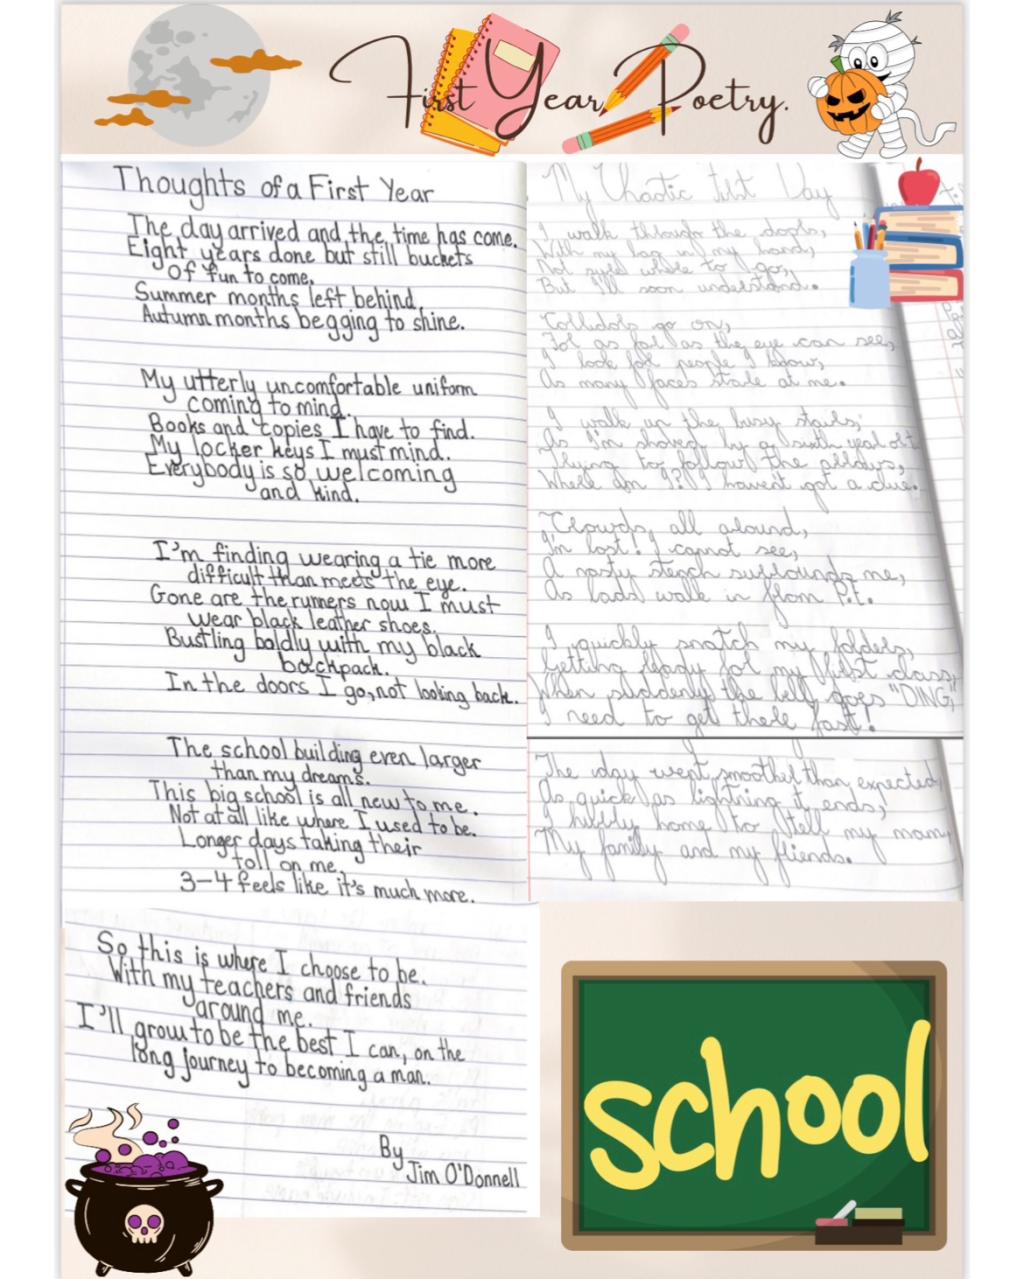 First Year Poetry.
Thoughts of a First Year
The day arrived and the time has come.
Eight years done but still buckets
of fun to come.
Summer months left behind.
Autumn months begging to shine.
My utterly uncomfortable uniform
coming to mind.
Books and copies I have to find.
My locker keys I must mind.
Everybody is so welcoming
and kind.
I'm finding wearing a tie more
difficult than meets the eye.
Gone are the runners now I must
wear black leather shoes.
Bustling boldly with my black
backpack.
In the doors I go, not looking back.
The school building even larger
than my dreams.
This big school is all new to me.
Not at all like where I used to be.
Longer days taking their
toll on me.
3-4 feels like it's much more.
So this is where I choose to be.
With my teachers and friends
around me.
I'll grow to be the best I can, on the
long journey to becoming a man.
By
Jim O'Donnell
My Chaotic First Day
I walk through the doors,
With my bag in my hand,
Not sure where to go,
But I'll soon understand.
Corridors go on,
For as far as the eye can see,
I look for people I know,
As many faces stare at me.
I walk up the busy stairs,
As I'm shoved by a sixth year
Trying to follow the arrows,
Where am I? I haven't got a clue.
Crowds all around,
I'm lost! I cannot see,
A nasty stench surrounds me,
As lads walk in from P.E.
I quickly snatch my folders,
Getting ready for my first class,
When suddenly the bell goes "DING",
I need to get there fast!
The day went smoother than expected,
As quick as lightning it ends,
I hurry home to tell my mam,
My family and my friends.
school